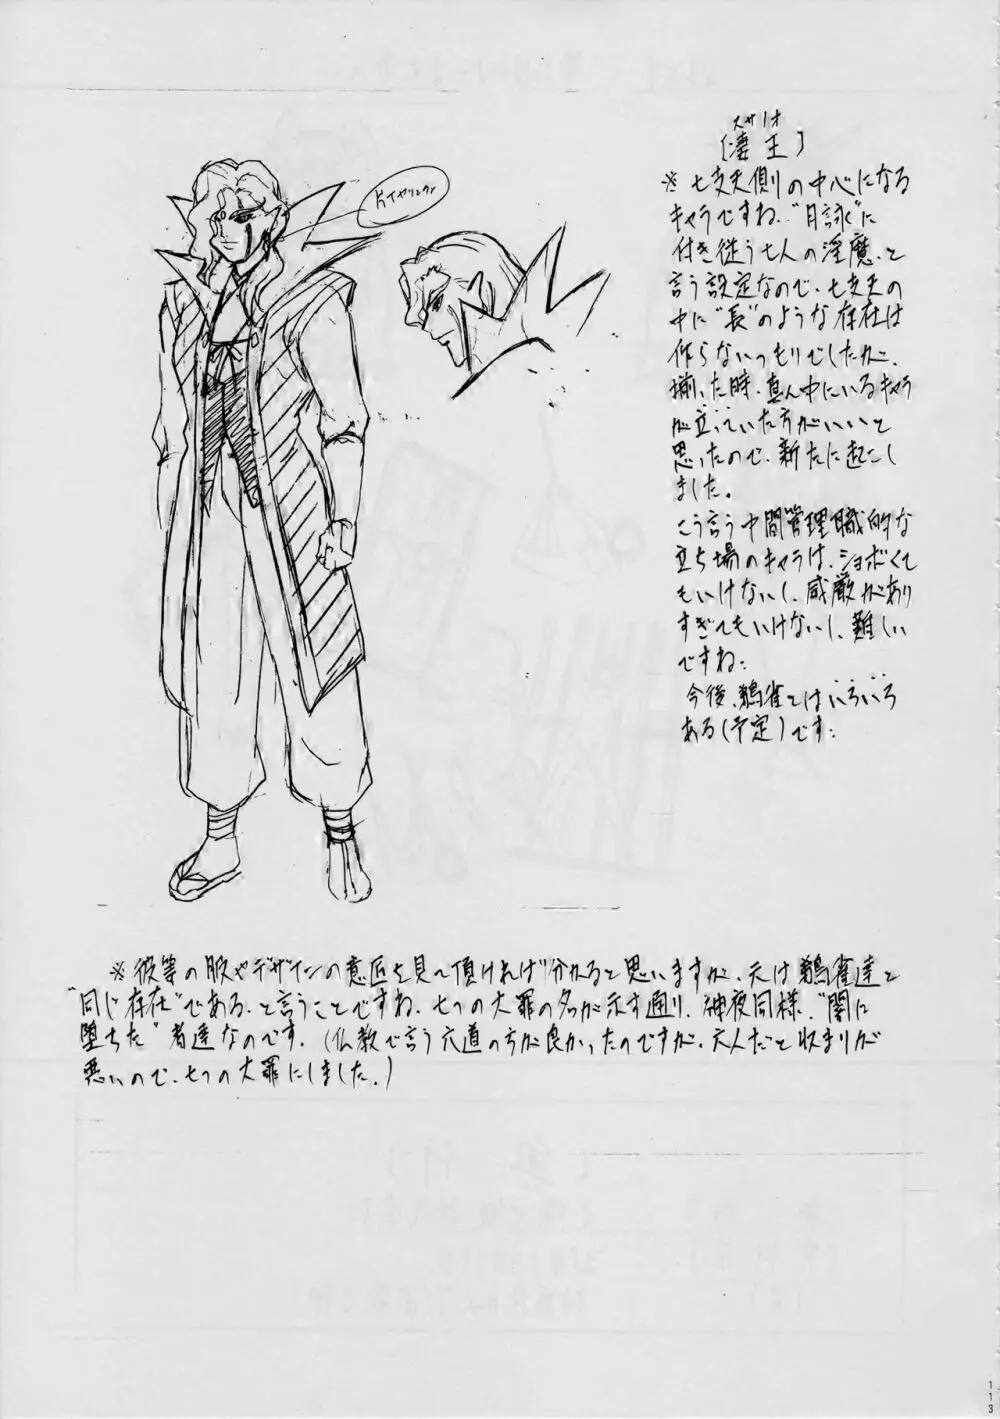 スサノオ
【凄王】
片イヤリング
※ 七支夫側の中心になる
キャラですね. "月詠"に
付き従う七人の淫魔、と
言う設定なので、七支夫の
中に"長"のような存在は
作らないつもりでしたが、
揃った時、真ん中にいるキャラ
が立っていた方がいいと
思ったので、新たに起こし
ました。
こう言う中間管理職的な
立ち場のキャラは、ショボくて
もいけないし、威厳があり
すぎてもいけないし、難しい
ですね…
今後、鵺雀とはいろいろ
ある(予定)です…
※ 彼等の服やデザインの意匠を見て頂ければ分かると思いますが、元は鵺雀達と
"同じ存在"である、と言うことですね. 七つの大罪の名が示す通り、神夜同様、"闇に
堕ちた"者達なのです. (仏教で言う六道の方が良かったのですが、六人だと収まりが
悪いので、七つの大罪にしました.)
113